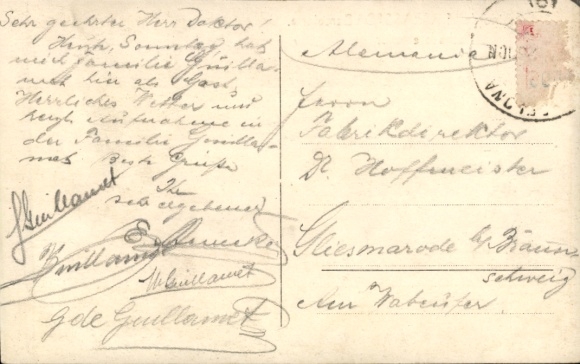 Sehr geehrter Herr Doktor!
Heute, Sonntag, hat
mich Familie Guilla-
met hier als Gast.
Herrliches Wetter und
Aufnahme in
der Familie Guilla-
met Beste Grüße
Ihr
sehr ergebener
JGuillamet
Guillamet
MGuillamet
G de Guillamet
Alemania
Herrn
Fabrikdirektor
Dr. Hoffmeister
Gliesmarode b/Braun-
schweig
Am